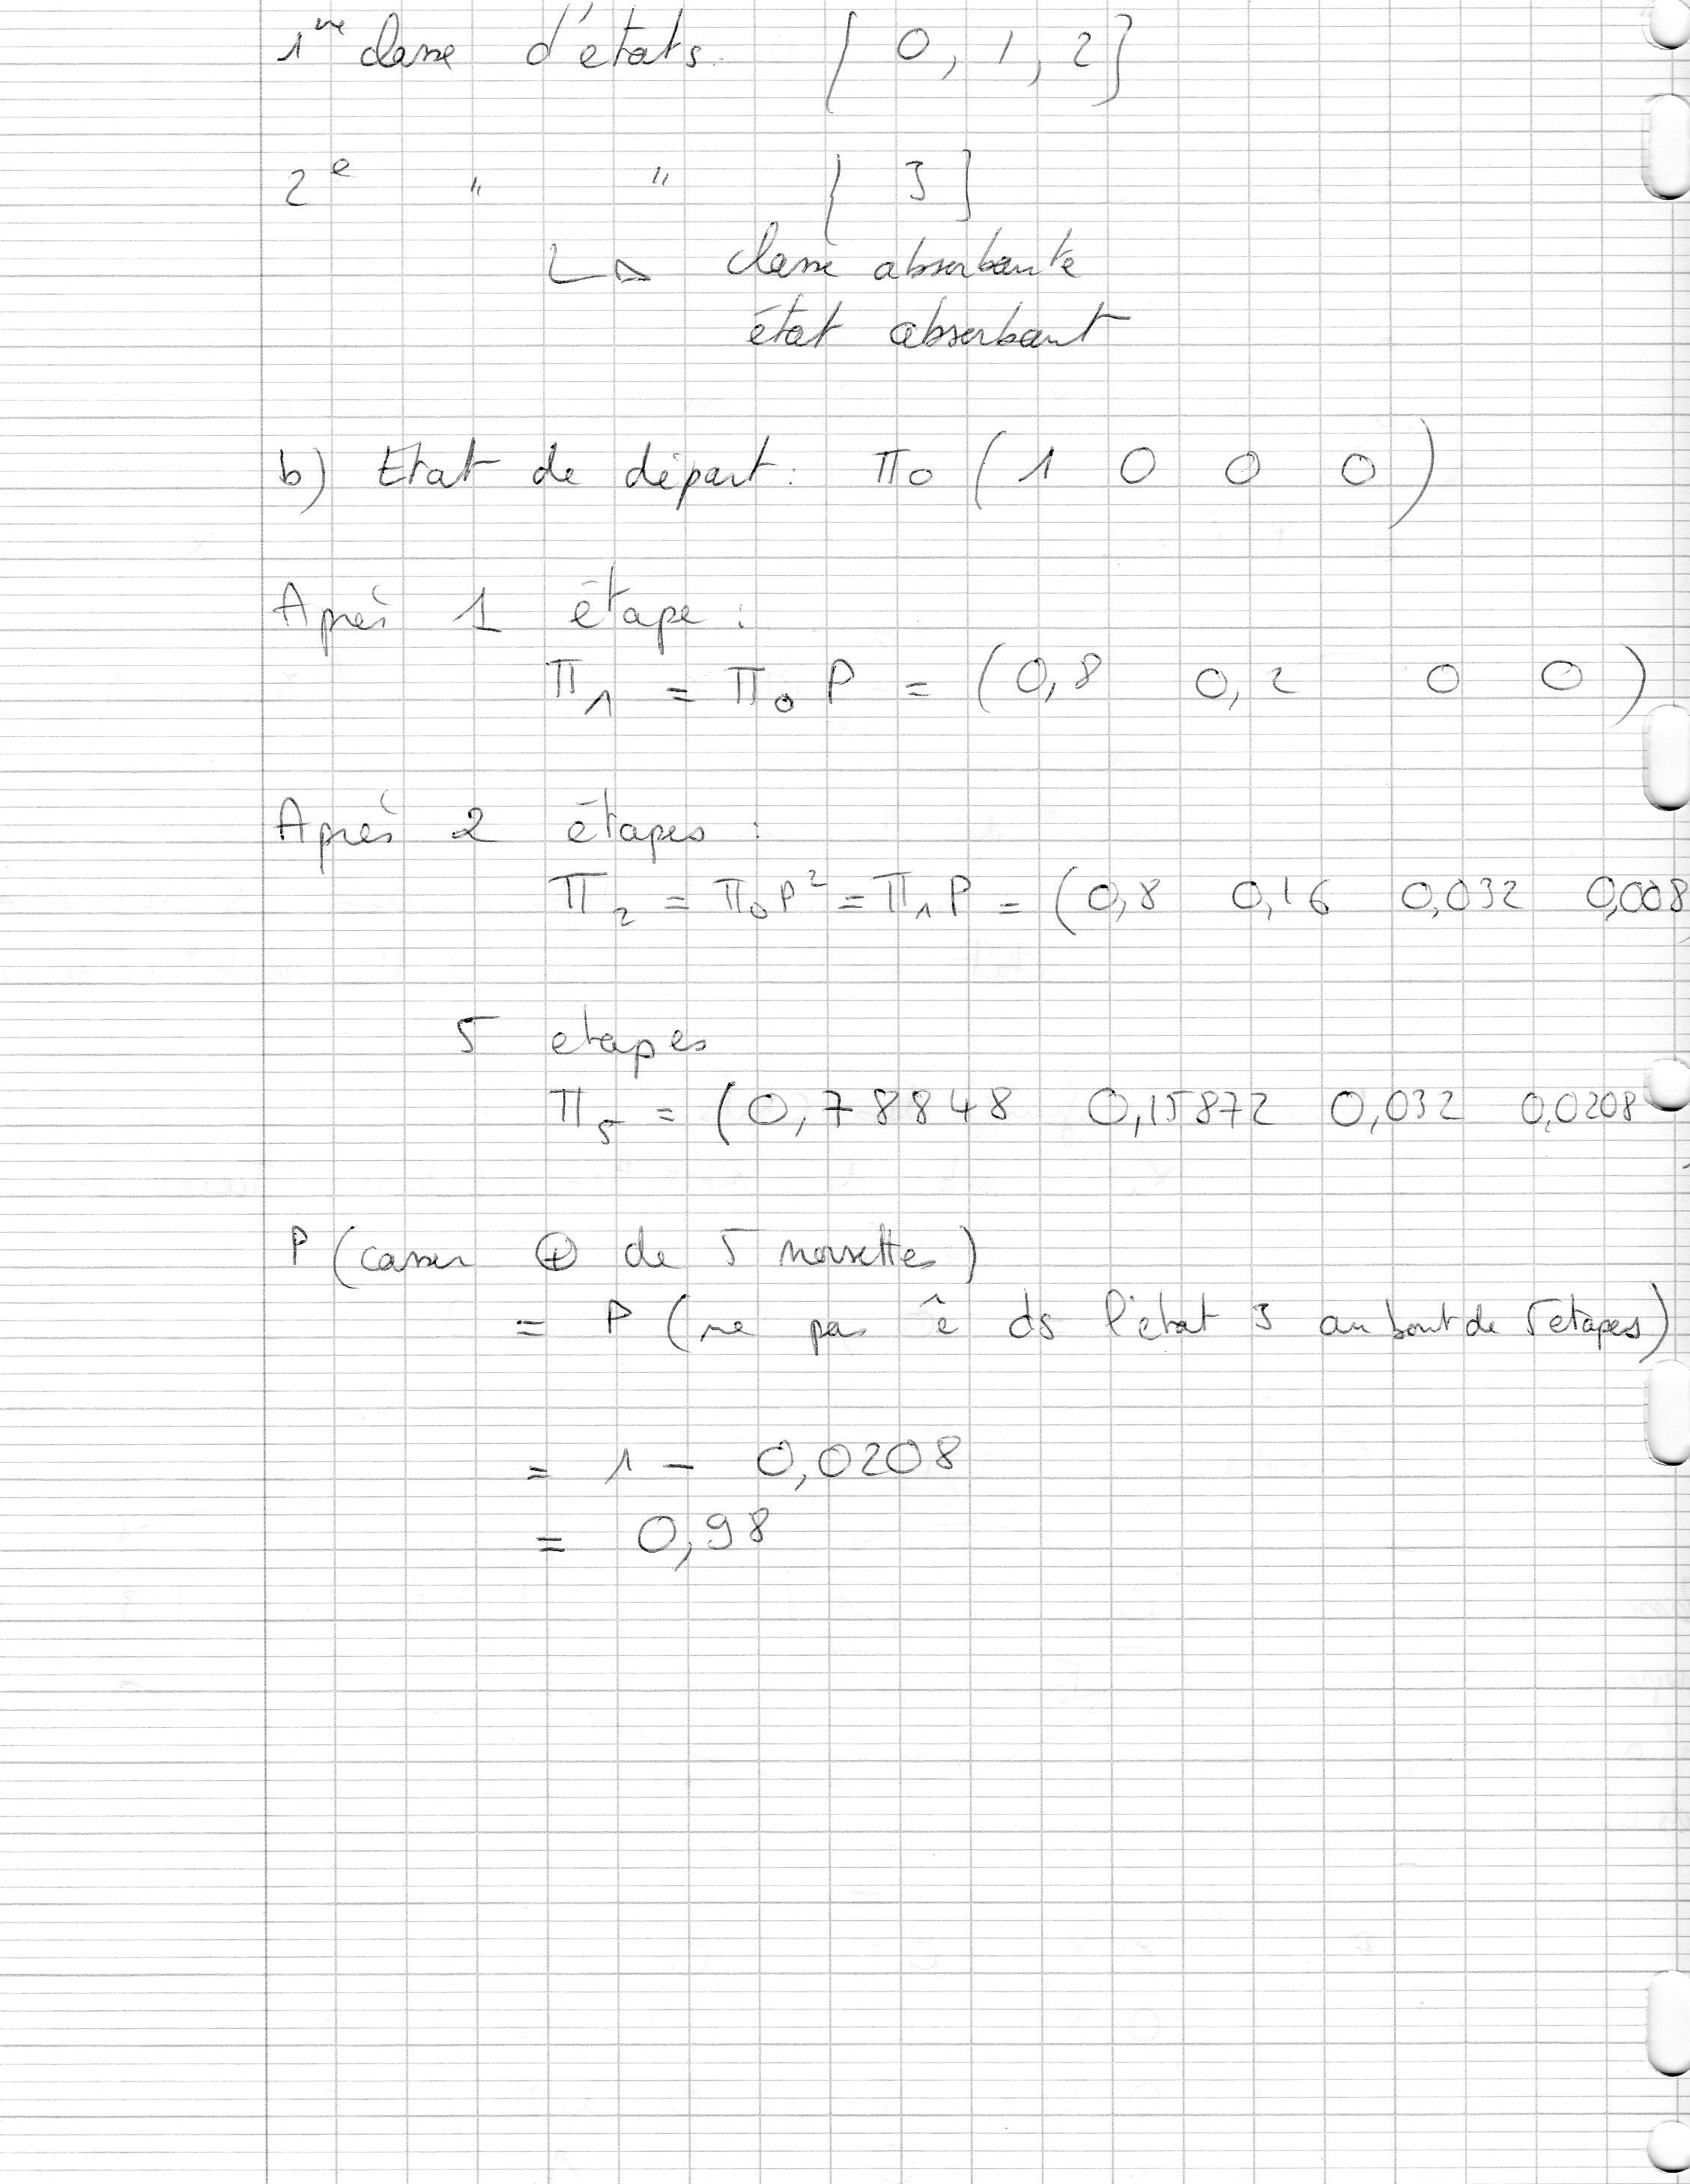 1re classe d'états. { 0, 1, 2}
2e " " { 3 }
↳ classe absorbante
état absorbant
b) Etat de départ : π0 ( 1 0 0 0 )
Après 1 étape :
π1 = π0 P = (0,8 0,2 0 0 )
Après 2 étapes :
π2 = π0P² = π1P = (0,8 0,16 0,032 0,008
5 etapes
π5 = (0,78848 0,15872 0,032 0,0208
P (casser ⊕ de 5 noisettes)
= P (ne pas ê ds l'état 3 au bout de 5 etapes)
= 1 - 0,0208
= 0,98